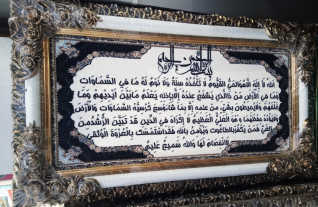 بسم الله الرحمن الرحيم
الله لا إله إلا هو الحي القيوم لا تأخذه سنة ولا نوم له ما في السماوات
وما في الأرض من ذا الذي يشفع عنده إلا بإذنه يعلم ما بين أيديهم وما
خلفهم ولا يحيطون بشيء من علمه إلا بما شاء وسع كرسيه السماوات والأرض
ولا يؤده حفظهما وهو العلي العظيم لا إكراه في الدين قد تبين الرشد من
الغي فمن يكفر بالطاغوت ويؤمن بالله فقد استمسك بالعروة الوثقى
لا انفصام لها والله سميع عليم